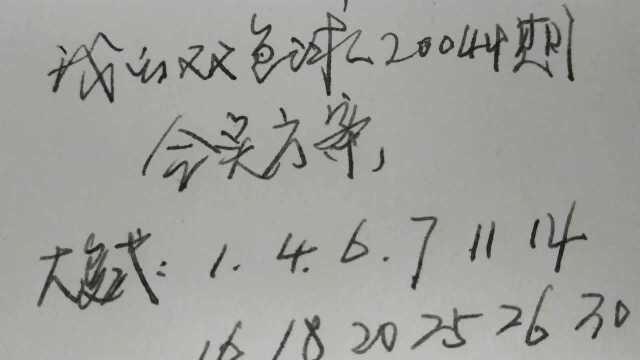 我的双色球20044期
会员方案,
大复式: 1. 4. 6. 7 11 14
16 18 20 25 26 30